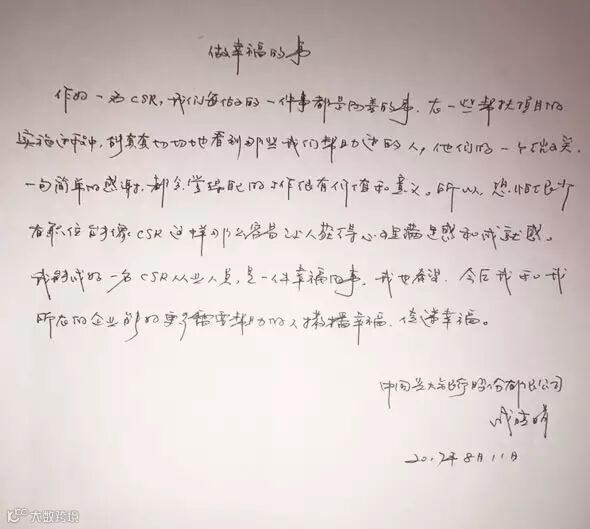 做幸福的事
作为一名CSR,我们每做的一件事都是向善的事.在一些帮扶项目的
实施过程中,真真切切地看到那些我们帮助过的人,他们的一个微笑.
一句简单的感谢.都会觉得我的工作很有价值和意义。所以,恐怕很少
有职位能像CSR这样那么容易让人获得心理满足感和成就感。
我能成为一名CSR从业人员,是一件幸福的事.我也希望.今后我和我
所在的企业能为更多需要帮助的人播幸福.传递幸福。
中国光大银行股份有限公司
晴
2017年8月11日
大数跨境